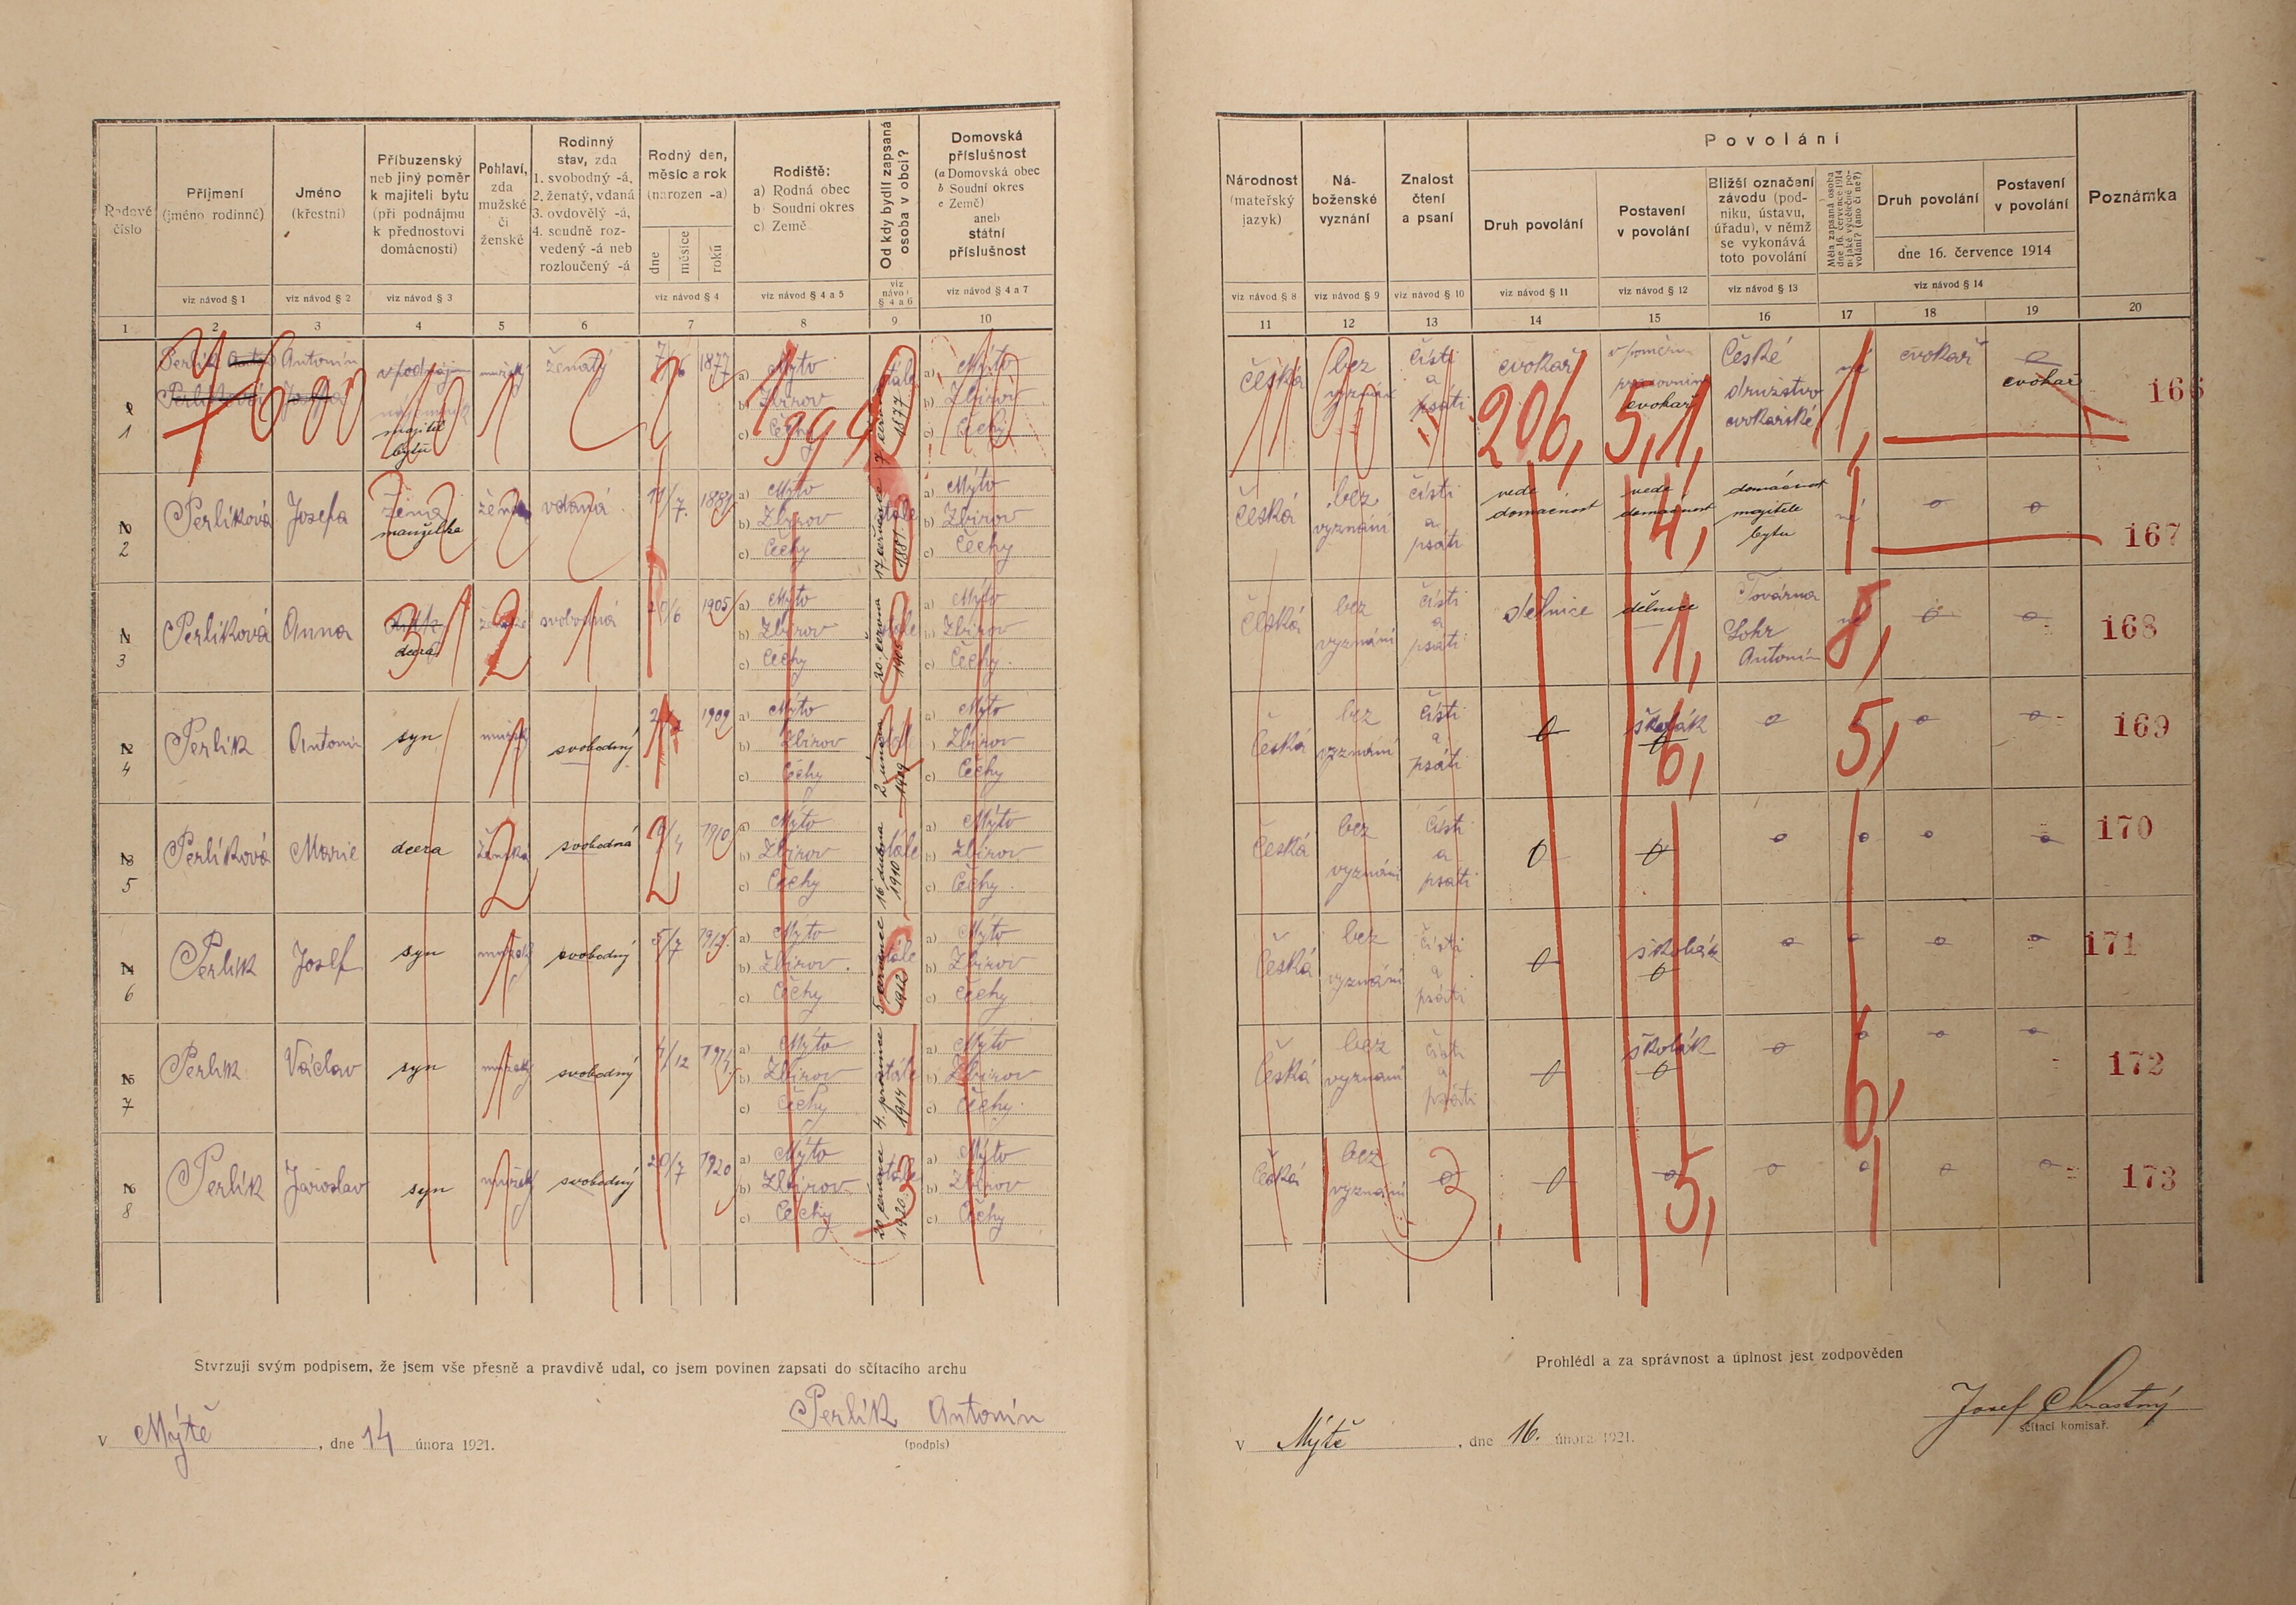 Řadové číslo
Příjmení (jméno rodinné)
Jméno (křestní)
Příbuzenský neb jiný poměr k majiteli bytu (při podnájmu k přednostovi domácnosti)
Pohlaví, zda mužské či ženské
Rodinný stav, zda 1. svobodný -á, 2. ženatý, vdaná 3. ovdovělý -á, 4. soudně rozvedený -á neb rozloučený -á
Rodný den, měsíc a rok (narozen -a)
dne měsíce roku
Rodiště: a) Rodná obec b) Soudní okres c) Země
Od kdy bydlí zapsaná osoba v obci?
Domovská příslušnost (a Domovská obec b Soudní okres c Země) aneb státní příslušnost
viz návod § 1 viz návod § 2 viz návod § 3 viz návod § 4 viz návod § 4 a 5 viz návod § 4 a 6 viz návod § 4 a 7
1 2 3 4 5 6 7 8 9 10
Perlík Antonín
majitel bytu
ženatý 1877
a) Mýto a) Mýto
b) Zbirov b) Zbirov
c) Čechy c) Čechy
stále 1877
1
2 Perlíková Josefa žena manželka vdaná 1881
a) Mýto a) Mýto
b) Zbirov stále b) Zbirov
c) Čechy c) Čechy
3 Perlíková Anna dcera svobodná 20/6 1905
a) Mýto a) Mýto
b) Zbirov stále b) Zbirov
c) Čechy c) Čechy
4 Perlík Antonín syn mužské svobodný 1909
a) Mýto a) Mýto
b) Zbirov b) Zbirov
c) Čechy c) Čechy
5 Perlíková Marie dcera ženská svobodná 1910
a) Mýto a) Mýto
b) Zbirov stále b) Zbirov
c) Čechy c) Čechy
6 Perlík Josef syn svobodný 5/7 1912
a) Mýto a) Mýto
b) Zbirov stále b) Zbirov
c) Čechy c) Čechy
7 Perlík Václav syn svobodný 4/12 1914
a) Mýto a) Mýto
b) Zbirov stále b) Zbirov
c) Čechy c) Čechy
8 Perlík Jaroslav syn svobodný 20/7 1920
a) Mýto a) Mýto
b) Zbirov stále b) Zbirov
c) Čechy c) Čechy
Stvrzuji svým podpisem, že jsem vše přesně a pravdivě udal, co jsem povinen zapsati do sčítacího archu
Perlík Antonín
(podpis)
V Mýtě, dne 14 února 1921.
Národnost (mateřský jazyk)
Náboženské vyznání
Znalost čtení a psaní
Povolání
Druh povolání
Postavení v povolání
Bližší označení závodu (podniku, ústavu, úřadu), v němž se vykonává toto povolání
Měla zapsaná osoba dne 16. července 1914 nějaké výdělečné povolání? (ano či ne?)
Druh povolání
Postavení v povolání
dne 16. července 1914
Poznámka
viz návod § 8 viz návod § 9 viz návod § 10 viz návod § 11 viz návod § 12 viz návod § 13 viz návod § 14
11 12 13 14 15 16 17 18 19 20
Česká bez vyznání čísti a psáti cvokař cvokař České družstvo cvokařské cvokař cvokař 166
206, 5,1,
Česká bez vyznání čísti a psáti vede domácnost vede domácnost domácnost majitele bytu 167
4,
Česká bez vyznání čísti a psáti dělnice dělnice Továrna Lohr Antonín 168
1, 8,
Česká bez vyznání čísti a psáti školák 169
6, 5,
Česká bez vyznání čísti a psáti 170
Česká bez vyznání čísti a psáti školák 171
Česká bez vyznání čísti a psáti školák 172
6,
Česká bez vyznání 173
3 5,
Prohlédl a za správnost a úplnost jest zodpověden
Josef Chrastný
sčítací komisař.
V Mýtě, dne 16. února 1921.